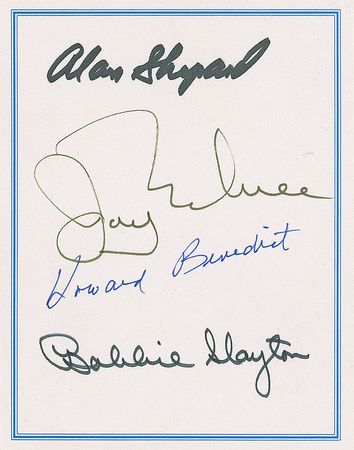 Alan Shepard
Jay Barbree
Howard Benedict
Bobbie Slayton